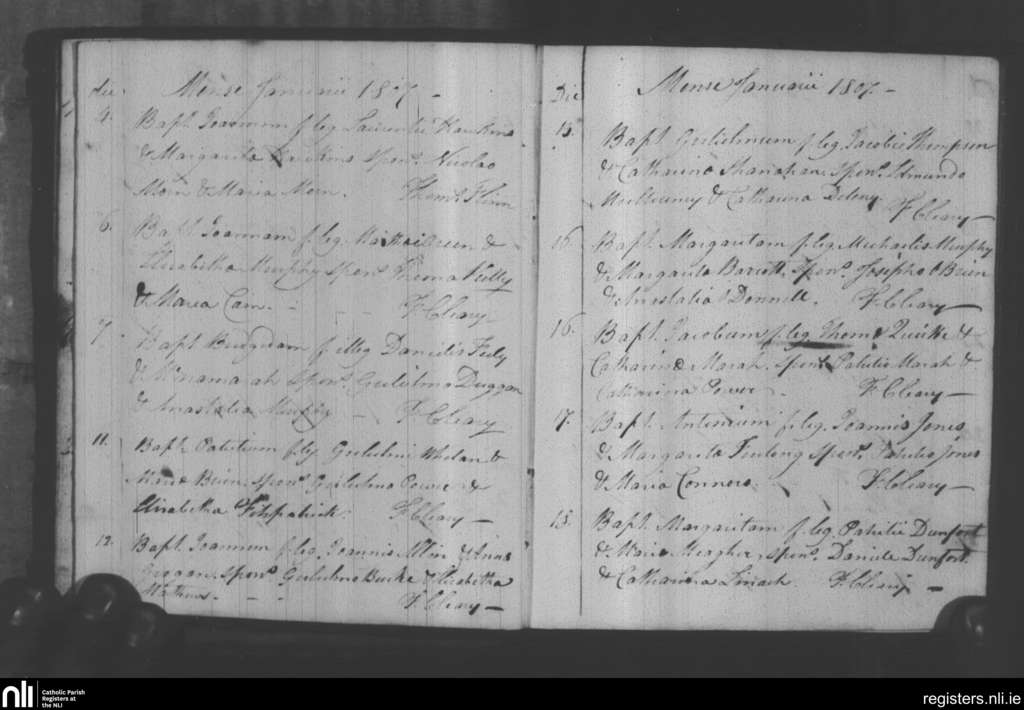 die Mense Januarii 1807 -
4. Bapt. Joannem f. leg. Laurentii Hawkins
& Margarita Hawkins Spons. Nicolao
& Maria Thoms. Flinn
6. Bapt. Joannam f. leg. &
Elizabetha Murphy Spons. Thoma
& Maria - - - F. Cleary
7. Bapt. Brigidam f. illeg. Danielis
& Spons. Gulielmo Duggan
& Anastatia Murphy - F. Cleary
11. Bapt. Patritium f. leg. Gulielmi Whelan &
Maria Brien Spons. Gulielmo Power &
Elisabetha Fitzpatrick. F. Cleary —
12. Bapt. Joannem f. leg. Joannis & Anna
Spons. Gulielmo Burke & Elisabetha
- - - F. Cleary —
Die Mense Januarii 1807. —
15. Bapt. Gulielmum f. leg. Jacobi Thompson
& Catharina Shanahan. Spons. Edmundo
& Catharina F. Cleary —
16. Bapt. Margaritam f. leg. Michaelis Murphy
& Margarita Barrett. Spons. Josepho O Brien
& Anastatia O Donnell. F. Cleary —
16. Bapt. Jacobum f. leg. Thoma Quirke &
Catharina Marah. Spons. Patritio Marah &
Catharina Power. F. Cleary —
17. Bapt. Antonium f. leg. Joannis Jones
& Margarita Spons. Patritio Jones
& Maria Connors. F. Cleary —
15. Bapt. Margaritam f. leg. Patritii Dunfort
& Maria Meagher, Spons. Daniele Dunfort
& Catharina F. Cleary —
nli Catholic Parish
Registers at
the NLI
registers.nli.ie